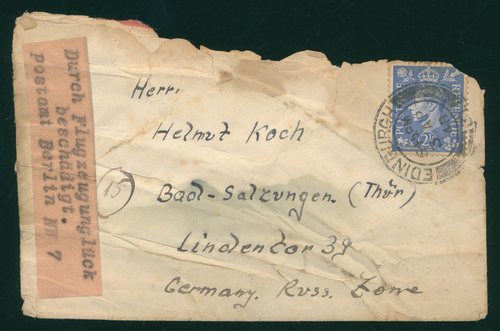 Durch Flugzeugunglück
beschädigt.
Postamt Berlin NW 7
Herrn
Helmut Koch
15
Bad-Salzungen (Thür)
Lindentor 39
Germany. Russ. Zone
EDINBURGH
POSTAGE
REVENUE